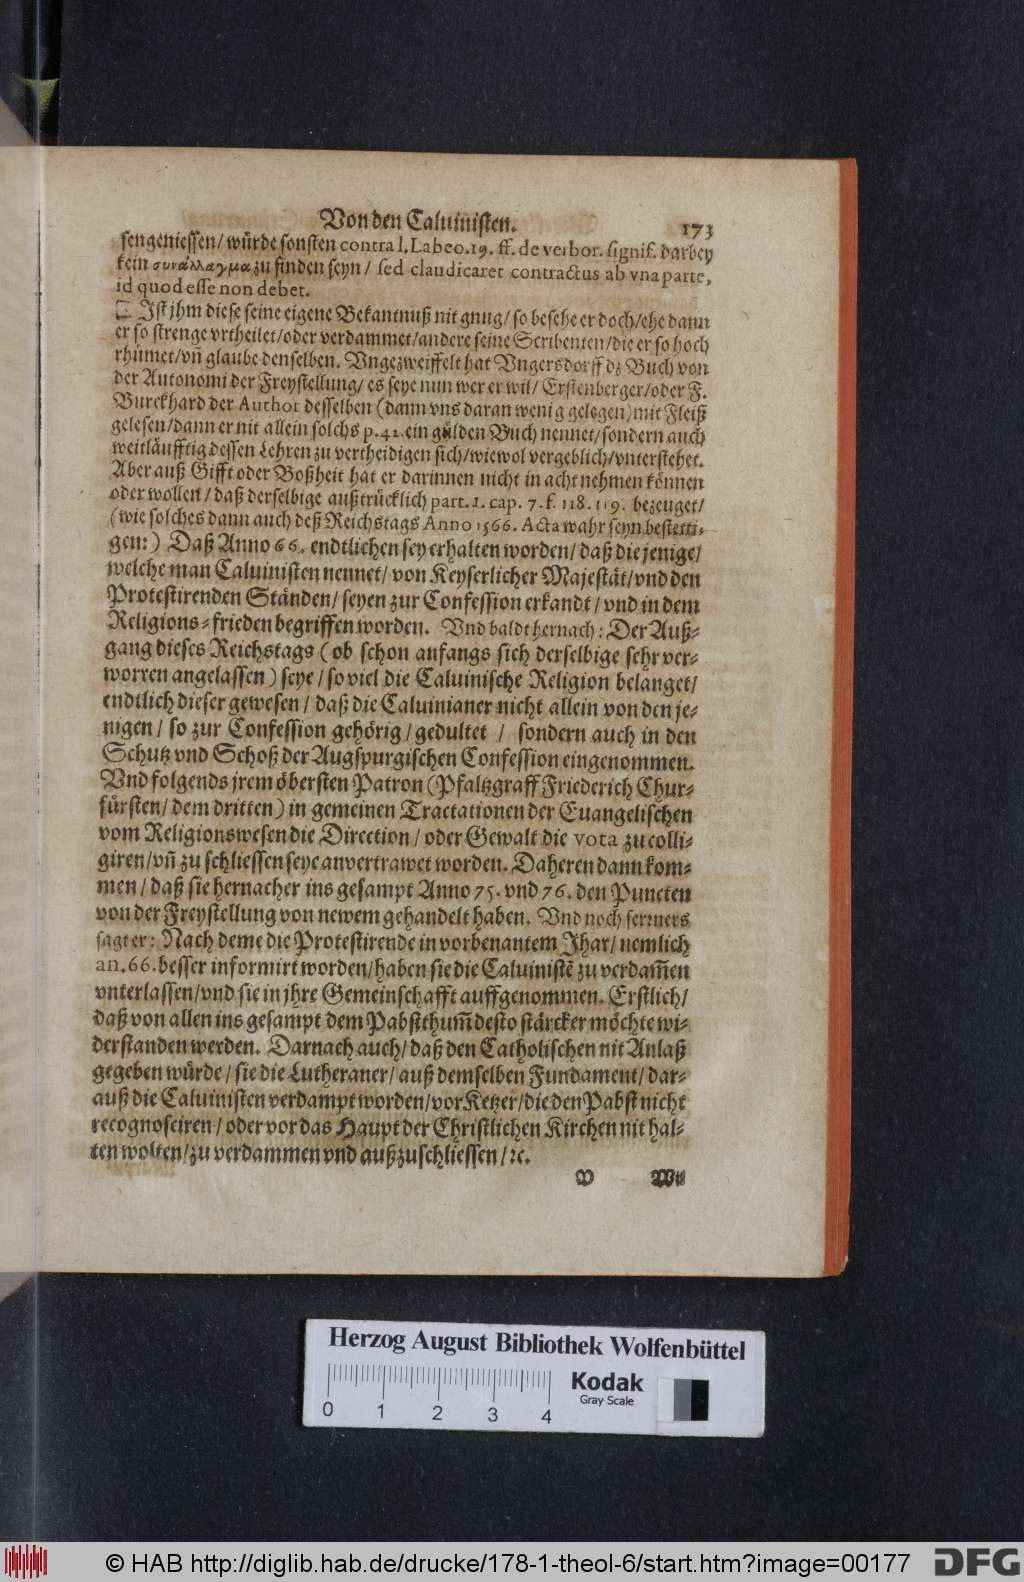 Von den Caluinisten. 173
sengeniessen/ würde sonsten contra l. Labeo. 19. ff. de verbor. signif. darbey
kein συνάλλαγμα zu finden seyn/ sed claudicaret contractus ab vna parte,
id quod esse non debet.
Ist jhm diese seine eigene Bekantnuß nit gnug/ so besehe er doch/ ehe dann
er so strenge vrtheilet/ oder verdammet/ andere seine Scribenten/ die er so hoch
rhümet/ vñ glaube denselben. Vngezweiffelt hat Vngersdorff dz Buch von
der Autonomi der Freystellung/ es seye nun wer er wil/ Erstenberger/ oder F.
Burckhard der Author desselben (dann vns daran wenig gelegen) mit Fleiß
gelesen/ dann er nit allein solchs p. 42. ein gülden Buch nennet/ sondern auch
weitläufftig dessen Lehren zu vertheidigen sich/ wiewol vergeblich/ vnterstehet.
Aber auß Gifft oder Boßheit hat er darinnen nicht in acht nehmen können
oder wollen/ daß derselbige außtrücklich part. 1. cap. 7. f. 118. 119. bezeuget/
(wie solches dann auch deß Reichstags Anno 1566. Acta wahr seyn bestetti-
gen:) Daß Anno 66. endtlichen sey erhalten worden/ daß die jenige/
welche man Caluinisten nennet/ von Keyserlicher Majestät/ vnd den
Protestirenden Ständen/ seyen zur Confession erkandt/ vnd in dem
Religions-frieden begriffen worden. Vnd baldt hernach: Der Auß-
gang dieses Reichstags (ob schon anfangs sich derselbige sehr ver-
worren angelassen) seye/ so viel die Caluinische Religion belanget/
endtlich dieser gewesen/ daß die Caluinianer nicht allein von den je-
nigen/ so zur Confession gehörig/ gedultet/ sondern auch in den
Schutz vnd Schoß der Augspurgischen Confession eingenommen.
Vnd folgends jrem öbersten Patron (Pfaltzgraff Friederich Chur-
fürsten/ dem dritten) in gemeinen Tractationen der Euangelischen
vom Religionswesen die Direction/ oder Gewalt die vota zu colli-
giren/ vñ zu schliessen seye anvertrawet worden. Daheren dann kom-
men/ daß sie hernacher ins gesampt Anno 75. vnd 76. den Puncten
von der Freystellung von newem gehandelt haben. Vnd noch ferrners
sagt er: Nach deme die Protestirende in vorbenantem Jhar/ nemlich
an. 66. besser informirt worden/ haben sie die Caluinistē zu verdam̃en
vnterlassen/ vnd sie in jhre Gemeinschafft auffgenommen. Erstlich/
daß von allen ins gesampt dem Pabstthum̃ desto stärcker möchte wi-
derstanden werden. Darnach auch/ daß den Catholischen nit Anlaß
gegeben würde/ sie die Lutheraner/ auß demselben Fundament/ dar-
auß die Caluinisten verdampt worden/ vor Ketzer/ die den Pabst nicht
recognosciren/ oder vor das Haupt der Christlichen Kirchen nit hal-
ten wolten/ zu verdammen vnd außzuschliessen/ ꝛc.
Herzog August Bibliothek Wolfenbüttel
0 1 2 3 4
Kodak
Gray Scale
© HAB http://diglib.hab.de/drucke/178-1-theol-6/start.htm?image=00177
DFG